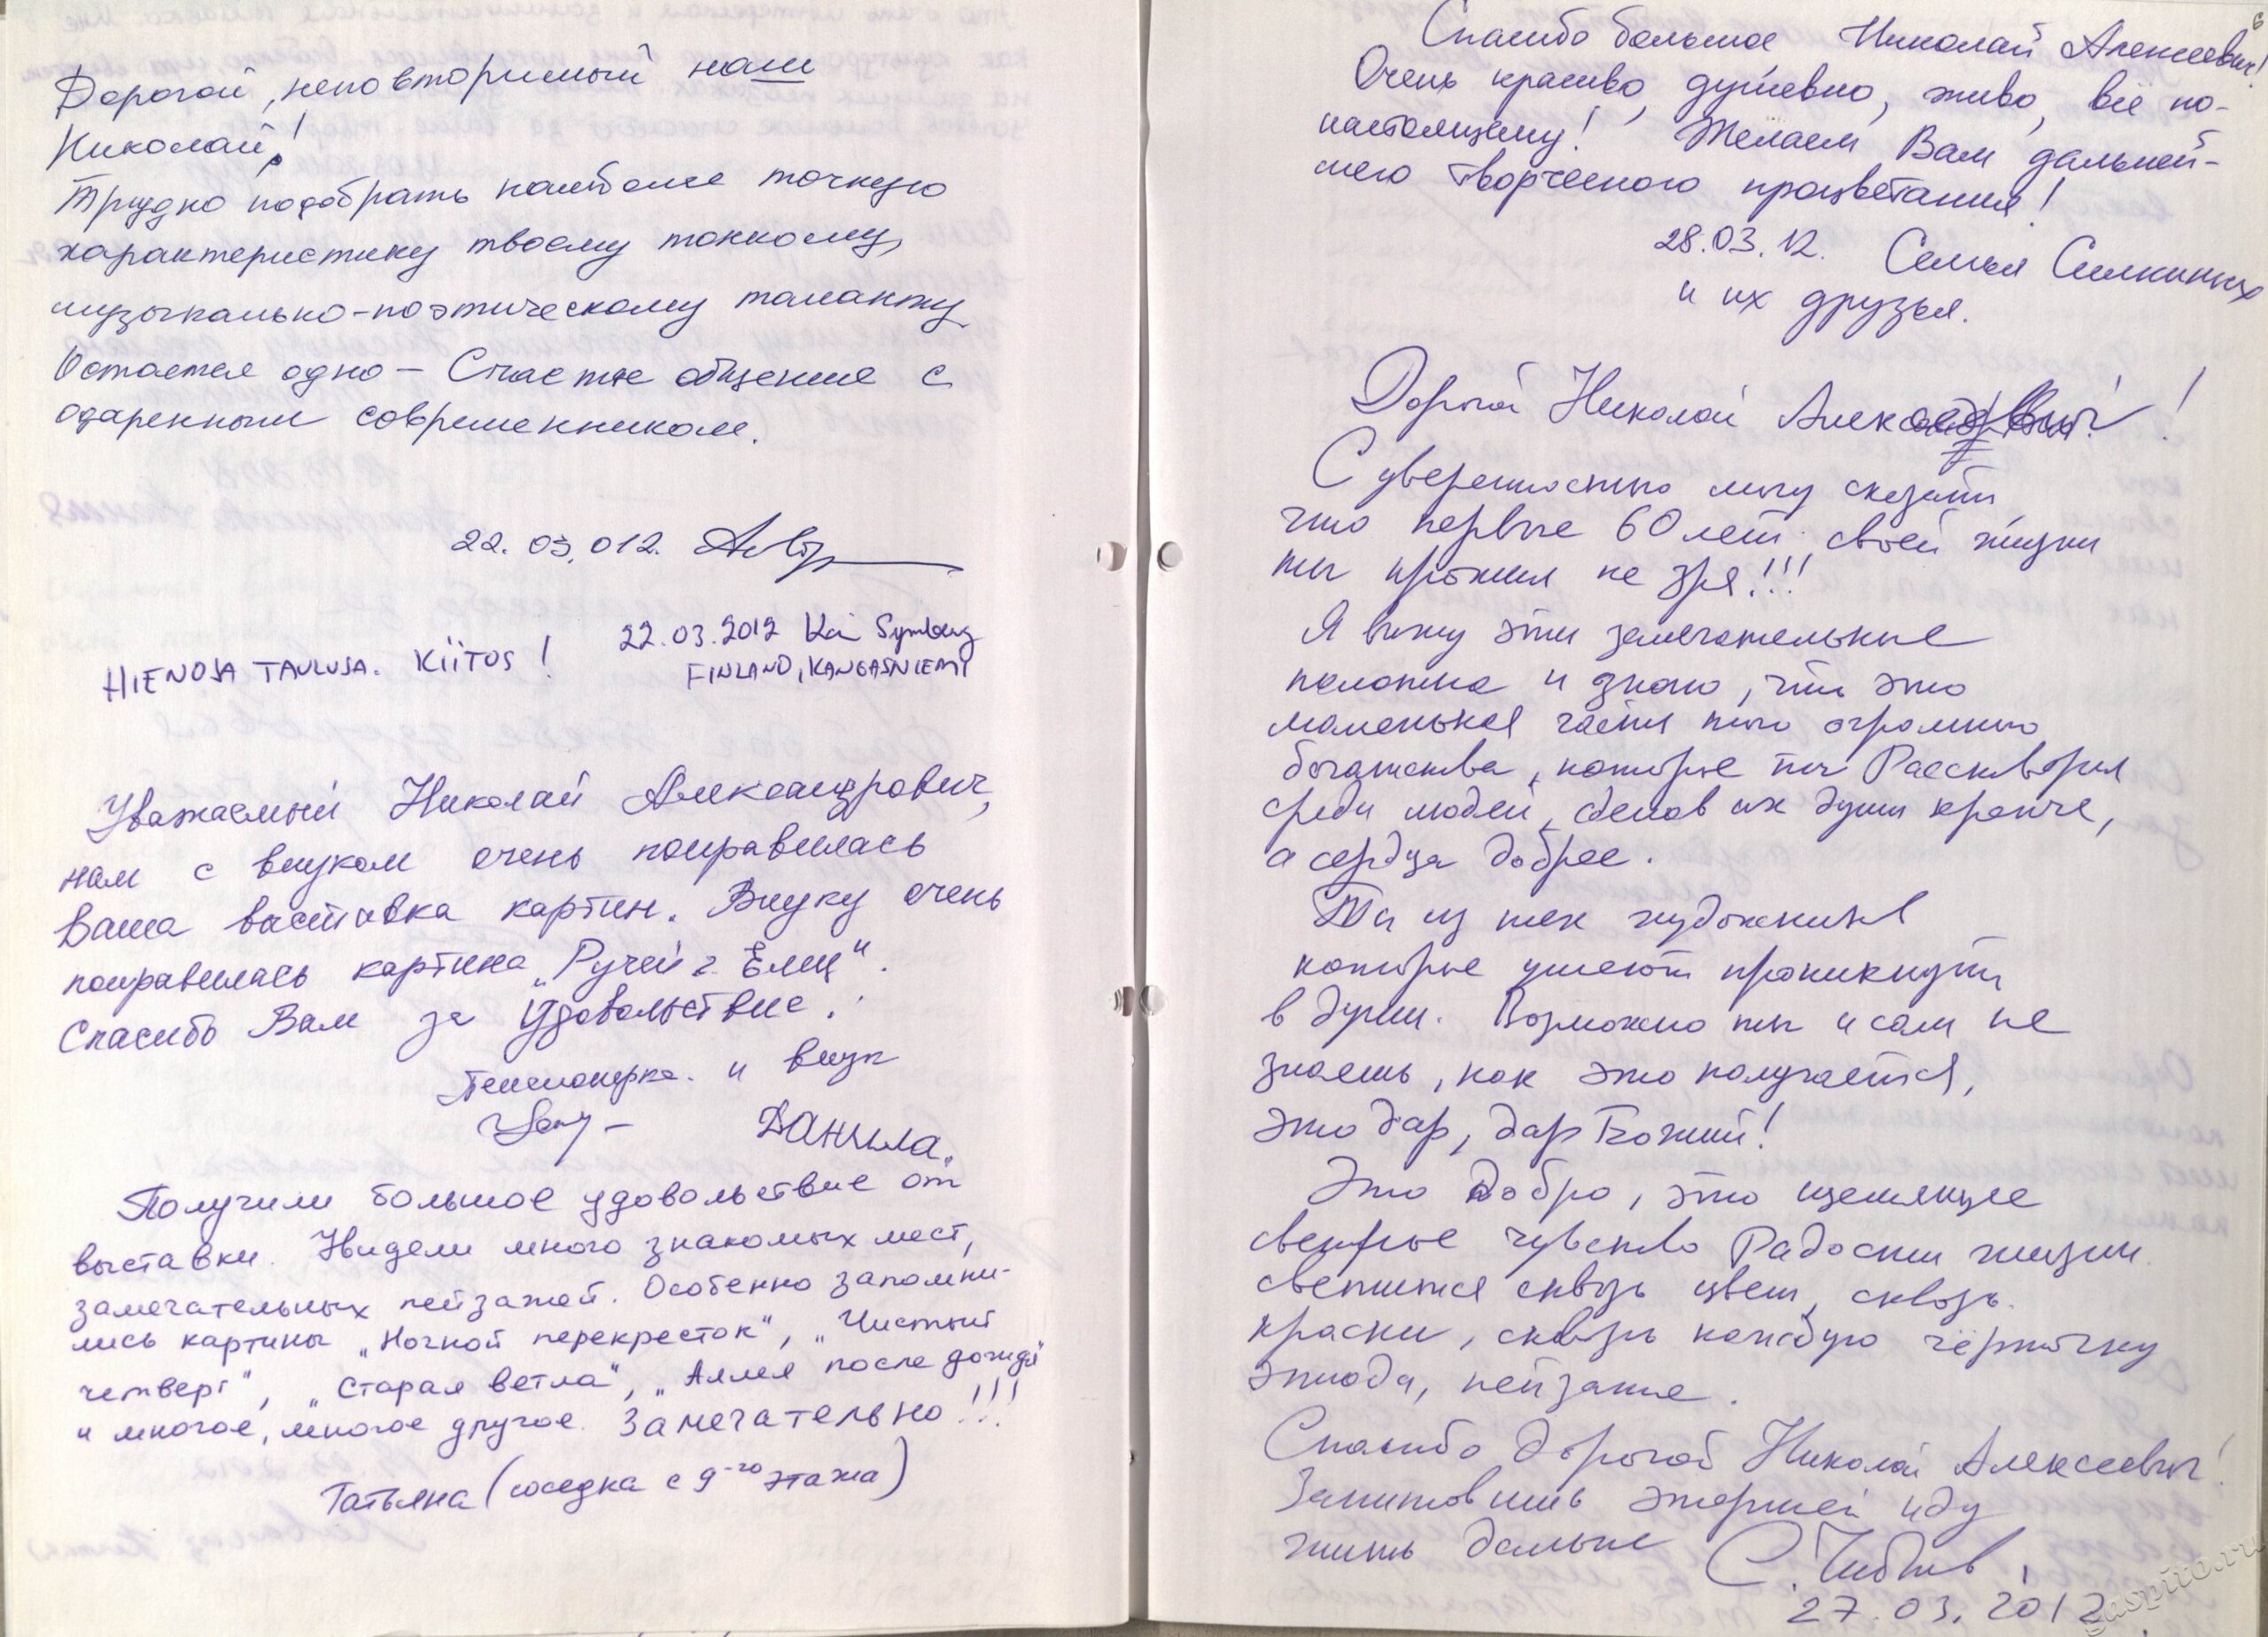 Дорогой, неповторимый наш
Николай!
Трудно подобрать наиболее точную
характеристику твоему тонкому,
музыкально-поэтическому таланту.
Остается одно – Счастье общения с
одаренным современником.
22.03.012.
22.03.2012 Kai
HIENOJA TAULUJA. KIITOS !
FINLAND, KANGASNIEMI
Уважаемый Николай Александрович,
нам с внуком очень понравилась
Ваша выставка картин. Внуку очень
понравилась картина „Ручей г. Елец".
Спасибо Вам за удовольствие.
Пенсионерка. и внук
Данила.
Получили большое удовольствие от
выставки. Увидели много знакомых мест,
замечательных пейзажей. Особенно запомни-
лись картины „Ночной перекресток", „Чистый
четверг", „Старая ветла", „Аллея после дождя"
и многое, многое другое. Замечательно!!!
Татьяна (соседка с 9-го этажа)
6
Спасибо большое Николай Алексеевич!
Очень красиво, душевно, живо, всё по-
настоящему! Желаем Вам дальней-
шего творческого процветания!
28.03.12. Семья
и их друзья.
Дорогой Николай !
С уверенностью могу сказать
что первые 60 лет своей жизни
ты прожил не зря!!!
Я вижу эти замечательные
полотна и знаю, что это
маленькая часть того огромного
богатства, которые ты
среди людей, сделав их души крепче,
а сердца добрее.
Ты из тех художников
которые умеют проникнуть
в души. Возможно ты и сам не
знаешь, как это получается,
это дар, дар Божий!
Это добро, это щемящее
светлое чувство Радости жизни
светится сквозь цвет, сквозь
краски, сквозь каждую чёрточку
этюда, пейзажа.
Спасибо дорогой Николай Алексеевич!
энергией иду
жить дальше С.
27.03.2012
gaspito.ru